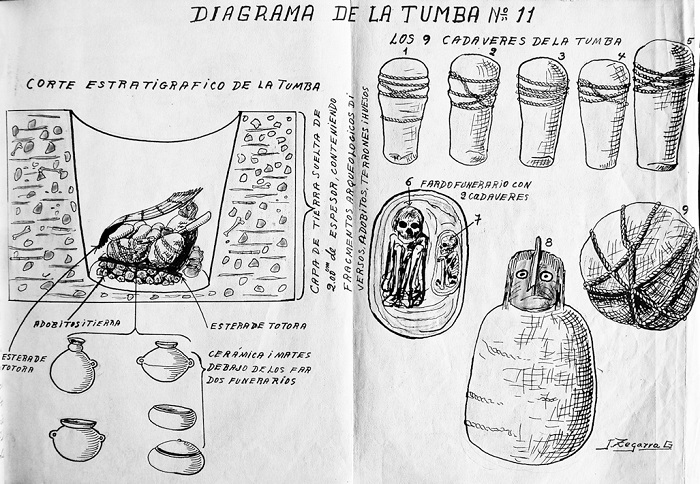 DIAGRAMA DE LA TUMBA Nº 11
CORTE ESTRATIGRAFICO DE LA TUMBA
CAPA DE TIERRA SUELTA DE
2.00 m de ESPESOR, CONTENIENDO
FRAGMENTOS ARQUEOLOGICOS DI
VERSOS, ADOBITOS, TERRONES I HUESOS
ADOBITOS I TIERRA
ESTERA DE TOTORA
ESTERA DE
TOTORA
CERÁMICA I MATES
DEBAJO DE LOS FAR
DOS FUNERARÍOS
LOS 9 CADAVERES DE LA TUMBA
1
2
3
4
5
6
FARDO FUNERARIO CON
2 CADAVERES
7
8
9
J Zegarra G